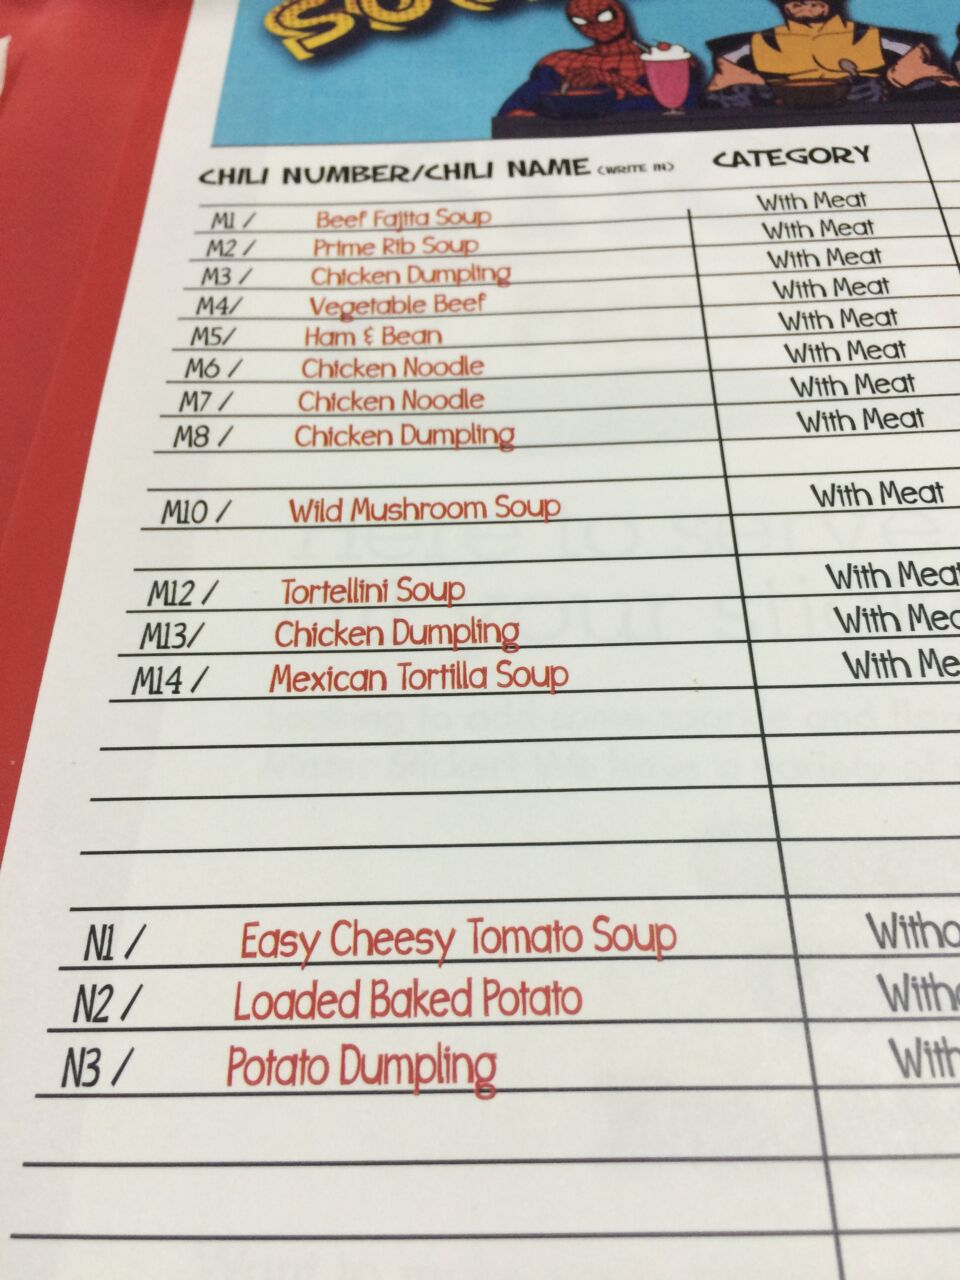 CHILI NUMBER/CHILI NAME (WRITE IN) CATEGORY
M1 / Beef Fajita Soup With Meat
M2 / Prime Rib Soup With Meat
M3 / Chicken Dumpling With Meat
M4/ Vegetable Beef With Meat
M5/ Ham & Bean With Meat
M6 / Chicken Noodle With Meat
M7 / Chicken Noodle With Meat
M8 / Chicken Dumpling With Meat
M10 / Wild Mushroom Soup With Meat
M12 / Tortellini Soup With Meat
M13/ Chicken Dumpling With Mea
M14 / Mexican Tortilla Soup With Me
N1 / Easy Cheesy Tomato Soup Witho
N2 / Loaded Baked Potato Witho
N3 / Potato Dumpling With